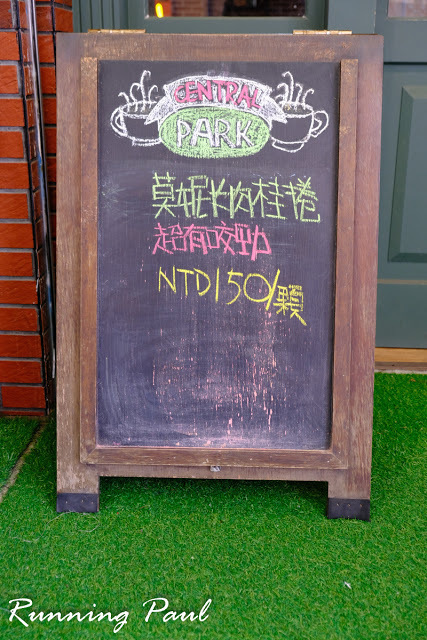 CENTRAL
PARK
莫妮卡肉桂捲
超有咬勁
NTD150/顆
Running Paul